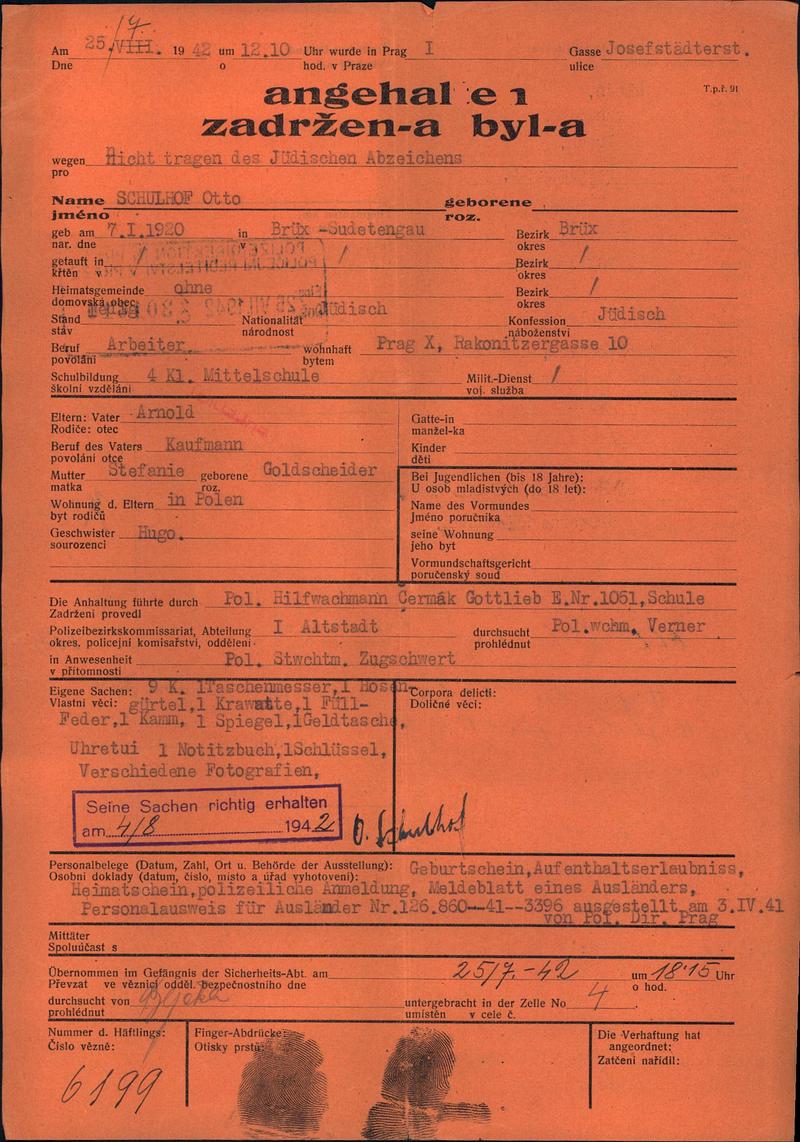 Am 25./7. VIII. 1942 um 12.10 Uhr wurde in Prag I Gasse Josefstädterst.
Dne o hod. v Praze ulice
angehal e 1
T.p.ř. 91
zadržen-a byl-a
wegen Nicht tragen des Jüdischen Abzeichens
pro
Name SCHULHOF Otto geborene
jméno roz.
geb am 7.I.1920 in Brüx -Sudetengau Bezirk Brüx
nar. dne v okres
getauft in / / Bezirk /
křtěn v okres
Heimatsgemeinde ohne Bezirk /
domovská obec okres
Stand ledig Nationalität Jüdisch Konfession Jüdisch
stav národnost náboženství
Beruf Arbeiter wohnhaft Prag X, Rakonitzergasse 10
povolání bytem
Schulbildung 4 Kl. Mittelschule Milit.-Dienst /
školní vzdělání voj. služba
Eltern: Vater Arnold Gatte-in
Rodiče: otec manžel-ka
Beruf des Vaters Kaufmann Kinder
povolání otce děti
Mutter Stefanie geborene Goldscheider Bei Jugendlichen (bis 18 Jahre):
matka roz. U osob mladistvých (do 18 let):
Wohnung d. Eltern in Polen Name des Vormundes
byt rodičů Jméno poručníka
Geschwister Hugo. seine Wohnung
sourozenci jeho byt
Vormundschaftsgericht
poručenský soud
Die Anhaltung führte durch Pol. Hilfwachmann Čermák Gottlieb E.Nr.1051,Schule
Zadržení provedl
Polizeibezirkskommissariat, Abteilung I Altstadt durchsucht Pol.wchm. Verner
okres. policejní komisařství, oddělení prohlédnut
in Anwesenheit Pol. Stwchtm. Zugschwert
v přítomnosti
Eigene Sachen: 9 K. 1Taschenmesser,1 Hosen- Corpora delicti:
Vlastní věci: gürtel,1 Krawatte,1 Füll- Doličné věci:
Feder,1 Kamm, 1 Spiegel,1Geldtasche,
Uhretui 1 Notitzbuch,1Schlüssel,
Verschiedene Fotografien,
Seine Sachen richtig erhalten
am 4/8 1942 O. Schulhof
Personalbelege (Datum, Zahl, Ort u. Behörde der Ausstellung): Geburtschein,Aufenthaltserlaubniss,
Osobní doklady (datum, číslo, místo a úřad vyhotovení):
Heimatschein,polizeiliche Anmeldung, Meldeblatt eines Ausländers,
Personalausweis für Ausländer Nr.126.860--41--3396 ausgestellt am 3.IV.41
von Pol. Dir. Prag
Mittäter
Spoluúčast s
Übernommen im Gefängnis der Sicherheits-Abt. am 25/7.-42 um 18'15 Uhr
Převzat ve věznici odděl. bezpečnostního dne o hod.
durchsucht von untergebracht in der Zelle No 4
prohlédnut umístěn v cele č.
Nummer d. Häftlings: Finger-Abdrücke: Die Verhaftung hat
Číslo vězně: Otisky prstů: angeordnet:
Zatčení nařídil:
6199